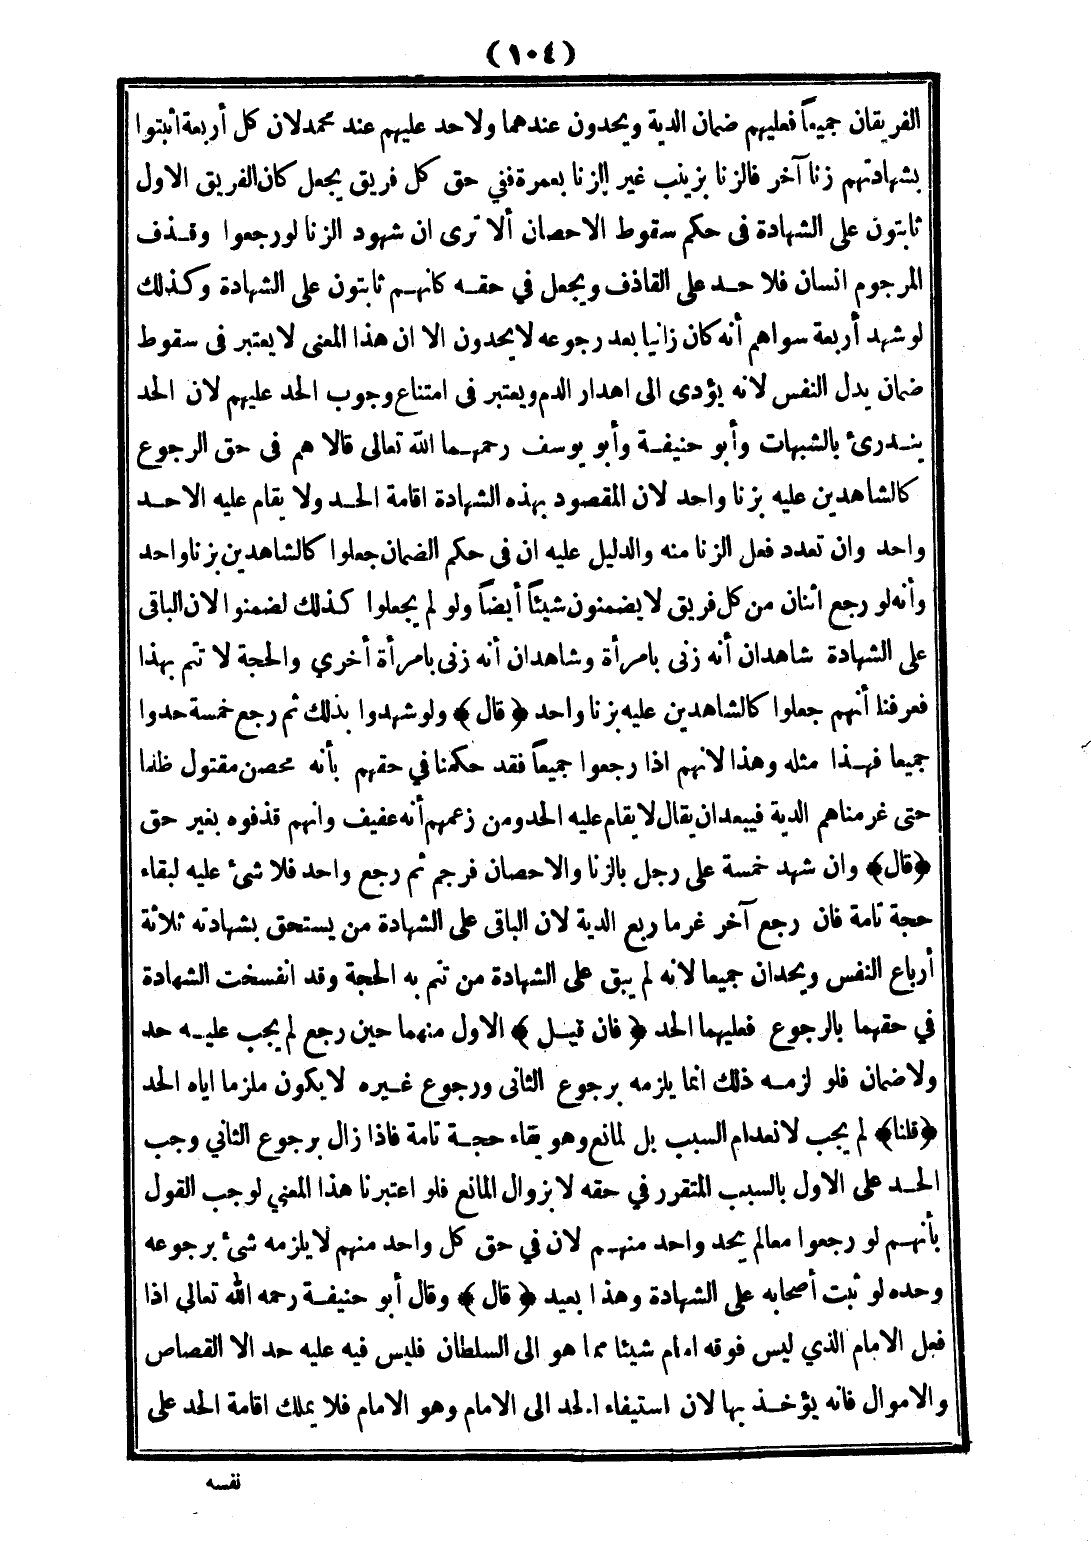 (١٠٤)
الفريقان جميعاً فعليهم ضمان الدية ويحدون عندهما ولاحد عليهم عند محمد لان كل أربعة اثبتوا
بشهادتهم زنا آخر فالزنا بزينب غير الزنا بعمرة ففي حق كل فريق يجعل كان الفريق الاول
ثابتون على الشهادة فى حكم سقوط الاحصان ألا ترى ان شهود الزنا لو رجعوا وقذف
المرجوم انسان فلا حد على القاذف ويجعل في حقه كانهم ثابتون على الشهادة وكذلك
لو شهد أربعة سواهم أنه كان زانيا بعد رجوعه لا يحدون الا ان هذا المعنى لا يعتبر فى سقوط
ضمان بدل النفس لانه يؤدى الى اهدار الدم ويعتبر فى امتناع وجوب الحد عليهم لان الحد
يندرئ بالشبهات وأبو حنيفة وأبو يوسف رحمهما الله تعالى قالا هم فى حق الرجوع
كالشاهدين عليه بزنا واحد لان المقصود بهذه الشهادة اقامة الحد ولا يقام عليه الاحد
واحد وان تعدد فعل الزنا منه والدليل عليه ان فى حكم الضمان جعلوا كالشاهدين بزنا واحد
وأنه لو رجع اثنان من كل فريق لا يضمنون شيئاً أيضاً ولو لم يجعلوا كذلك لضمنوا لان الباقى
على الشهادة شاهدان أنه زنى بامرأة وشاهدان أنه زنى بامرأة أخري والحجة لا تتم بهذا
فعرفنا أنهم جعلوا كالشاهدين عليه بزنا واحد ﴿قال﴾ ولو شهدوا بذلك ثم رجع خمسة حدوا
جميعا فهذا مثله وهذا لانهم اذا رجعوا جميعاً فقد حكمنا في حقهم بأنه محصن مقتول ظلما
حتى غرمناهم الدية فيبعد ان يقال لا يقام عليه الحد ومن زعمهم أنه عفيف وانهم قذفوه بغير حق
﴿قال﴾ وان شهد خمسة على رجل بالزنا والاحصان فرجم ثم رجع واحد فلا شئ عليه لبقاء
حجة تامة فان رجع آخر غرما ربع الدية لان الباقى على الشهادة من يستحق بشهادته ثلاثة
أرباع النفس ويحدان جميعا لانه لم يبق على الشهادة من تتم به الحجة وقد انفسخت الشهادة
في حقهما بالرجوع فعليهما الحد ﴿فان قيل﴾ الاول منهما حين رجع لم يجب عليه حد
ولا ضمان فلو لزمه ذلك انما يلزمه برجوع الثانى ورجوع غيره لا يكون ملزما اياه الحد
﴿قلنا﴾ لم يجب لانعدام السبب بل لمانع وهو بقاء حجة تامة فاذا زال برجوع الثاني وجب
الحد على الاول بالسبب المتقرر في حقه لا بزوال المانع فلو اعتبرنا هذا المعني لوجب القول
بأنهم لو رجعوا معالم يحد واحد منهم لان في حق كل واحد منهم لا يلزمه شئ برجوعه
وحده لو ثبت أصحابه على الشهادة وهذا بعيد ﴿قال﴾ وقال أبو حنيفة رحمه الله تعالي اذا
فعل الامام الذي ليس فوقه امام شيئا مما هو الى السلطان فليس فيه عليه حد الا القصاص
والاموال فانه يؤخذ بها لان استيفاء الحد الى الامام وهو الامام فلا يملك اقامة الحد على
نفسه